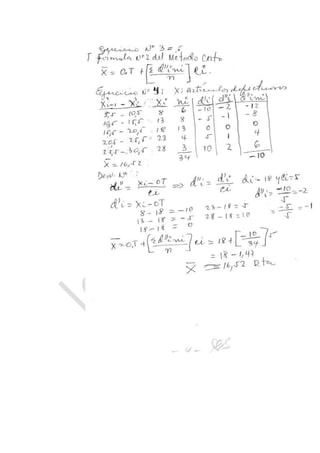 Ejercicio Nº 3 = 5
I Formula Nº 2 del Metodo Corto
X̄ = O.T + [Σ d''i ni / n] Ci.
Ejercicio Nº 4: X: Artículos defectuosos
Xi-1 - Xi Xi ni d'i d''i d''ini
5,5 - 10,5 8 6 -10 -2 -12
10,5 - 15,5 13 8 -5 -1 -8
15,5 - 20,5 18 13 0 0 0
20,5 - 25,5 23 4 5 1 4
25,5 - 30,5 28 3 10 2 6
34 -10
X̄ = 16,52.
Desv. Nº:
di'' = Xi - OT / Ci ⇒ d''i = d'i / Ci di = 18 y Ci = 5
d'i = Xi - OT d''i = -10 / 5 = -2
8 - 18 = -10 23 - 18 = 5 -5 / 5 = -1
13 - 18 = -5 28 - 18 = 10
18 - 18 = 0
X̄ = O.T + [Σ d''i ni / n] Ci = 18 + [-10 / 34] 5
= 18 - 1,47
X̄ = 16,52 Rta
- 4 -